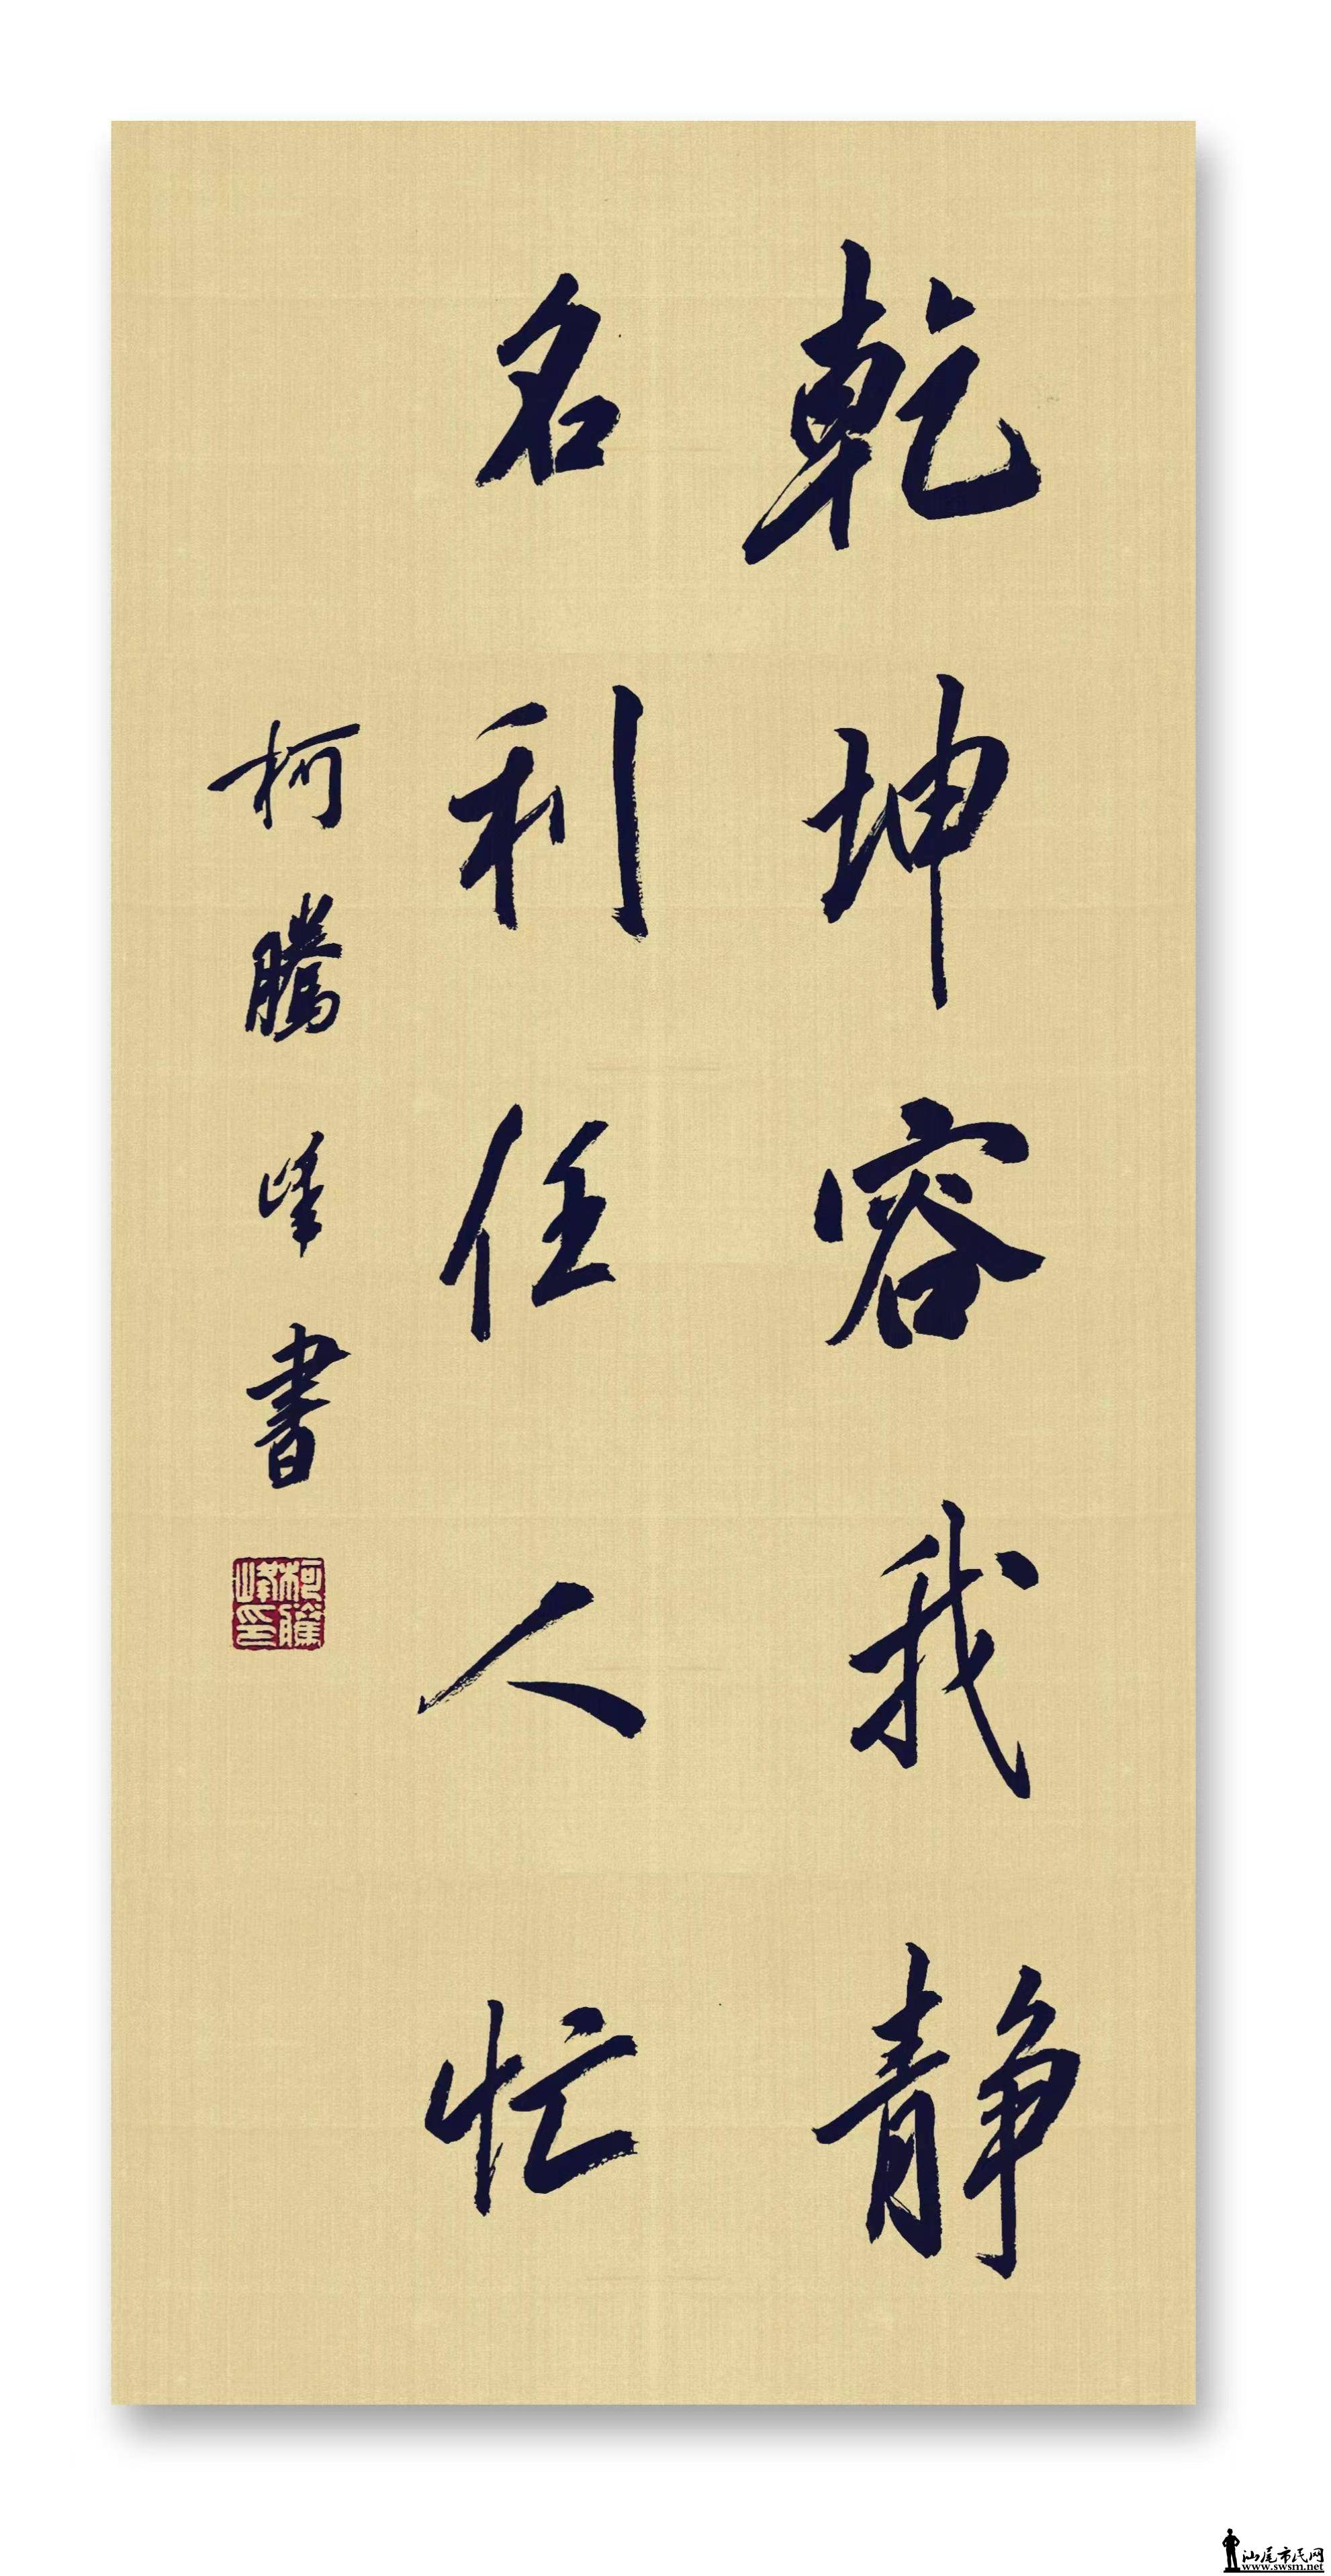 乾坤容我静
名利任人忙
柯騰峰書
柯騰峰印
汕尾市民网
www.swsm.net